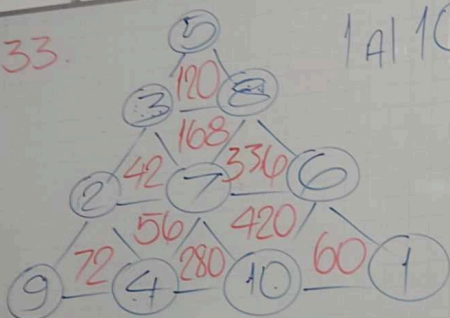 33.
5
1 Al 10
120
3 8
168
42 336
2 7 6
56 420
72 280 60
9 4 10 1